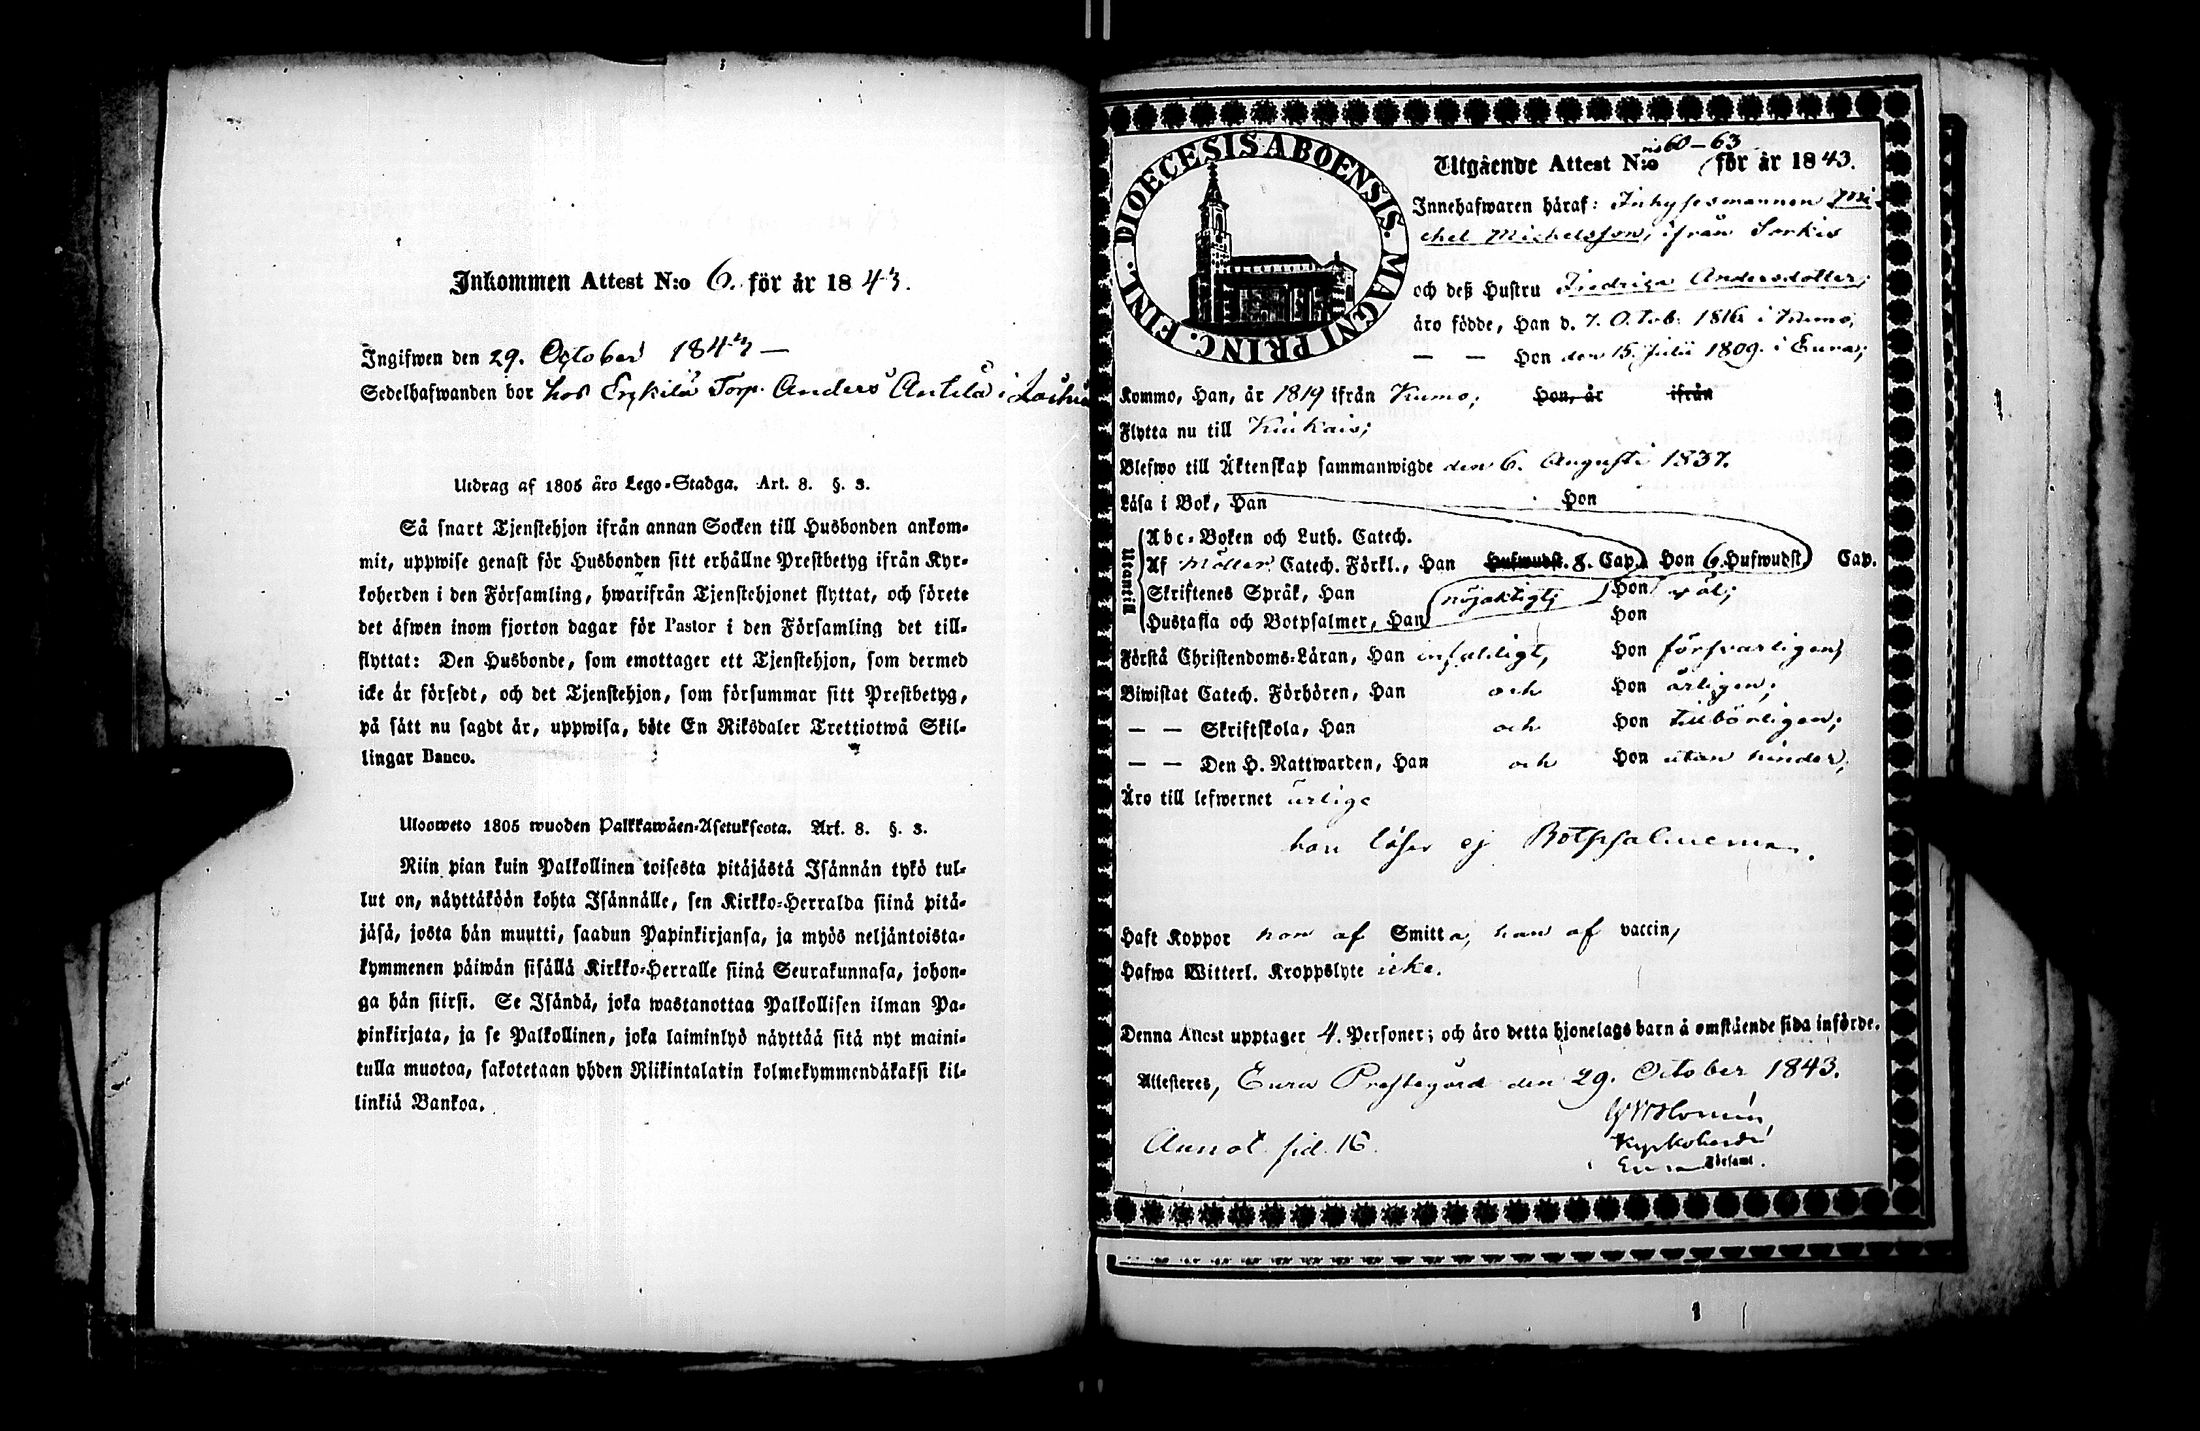 Inkommen Attest N:o 6. för år 1843.
Ingifwen den 29. October 1843 —
Sedelhafwanden bor hos Erkilä Torp. Anders Antila i
Utdrag af 1805 åro Lego-Stadga. Art. 8. §. 3.
Så snart Tjenstehjon ifrån annan Socken till Husbonden ankom-
mit, uppwise genast för Husbonden sitt erhållne Prestbetyg ifrån Kyr-
koherden i den Församling, hwarifrån Tjenstehjonet flyttat, och förete
det äfwen inom fjorton dagar för Pastor i den Församling det till-
flyttat: Den Husbonde, som emottager ett Tjenstehjon, som dermed
icke är försedt, och det Tjenstehjon, som försummar sitt Prestbetyg,
på sätt nu sagdt är, uppwisa, böte En Riksdaler Trettiotwå Skil-
lingar Banco.
Uloosweto 1805 wuoden Palkkawäen-Asetuksesta. Art. 8. §. 3.
Niin pian kuin Palkollinen toisesta pitäjästä Isännän tykö tul-
lut on, näyttäköön kohta Isännälle, sen Kirkko-Herralda siinä pitä-
jäsä, josta hän muutti, saadun Papinkirjansa, ja myös neljäntoista-
kymmenen päiwän sisällä Kirkko-Herralle siinä Seurakunnasa, johon-
ga hän siirsi. Se Isändä, joka wastanottaa Palkollisen ilman Pa-
pinkirjata, ja se Palkollinen, joka laiminlyö näyttää sitä nyt maini-
tulla muotoa, sakotetaan yhden Riikintalarin kolmekymmendäkaksi kil-
linkiä Bankoa.
DIOECESIS ABOENSIS. MAGNI PRINC. FINL.
Utgående Attest N:o 60–63 för år 1843.
Innehafwaren häraf: Inhysesmannen Mi-
chel Michelsson, ifrån Sorkis
och deß Hustru Fredrica Andersdotter;
äro födde, Han d. 7. Octob. 1816 i Kumo,
— — Hon den 15. Julii 1809. i Eura;
Kommo, Han, år 1819 ifrån Kumo; Hon, år ifrån
Flytta nu till Kiukais;
Blefwo till Äktenskap sammanwigde den 6. Augusti 1837.
Läsa i Bok, Han Hon
Utantill
Abc-Boken och Luth. Catech.
Af Möller Catech. Förkl., Han Hufwudst. 8. Cap. Hon 6. Hufwudst Cap.
Skriftenes Språk, Han nöjaktigt; Hon väl;
Hustafla och Botpsalmer, Han Hon
Förstå Christendoms-Läran, Han enfaldigt, Hon försvarligen;
Biwistat Catech. Förhören, Han och Hon årligen;
— — Skriftskola, Han och Hon tillbörligen;
— — Den H. Nattwarden, Han och Hon utan hinder;
Äro till lefwernet ärlige
han läser ej Botpsalmerna.
Haft Koppor hon af Smitta, han af vaccin,
Hafwa Witterl. Kroppslyte icke.
Denna Attest upptager 4. Personer; och äro detta hjonelags barn å omstående sida införde.
Attesteres, Eura Prestegård den 29. October 1843.
Kyrkoherde
Annot. sid. 16.
Eura Församl.